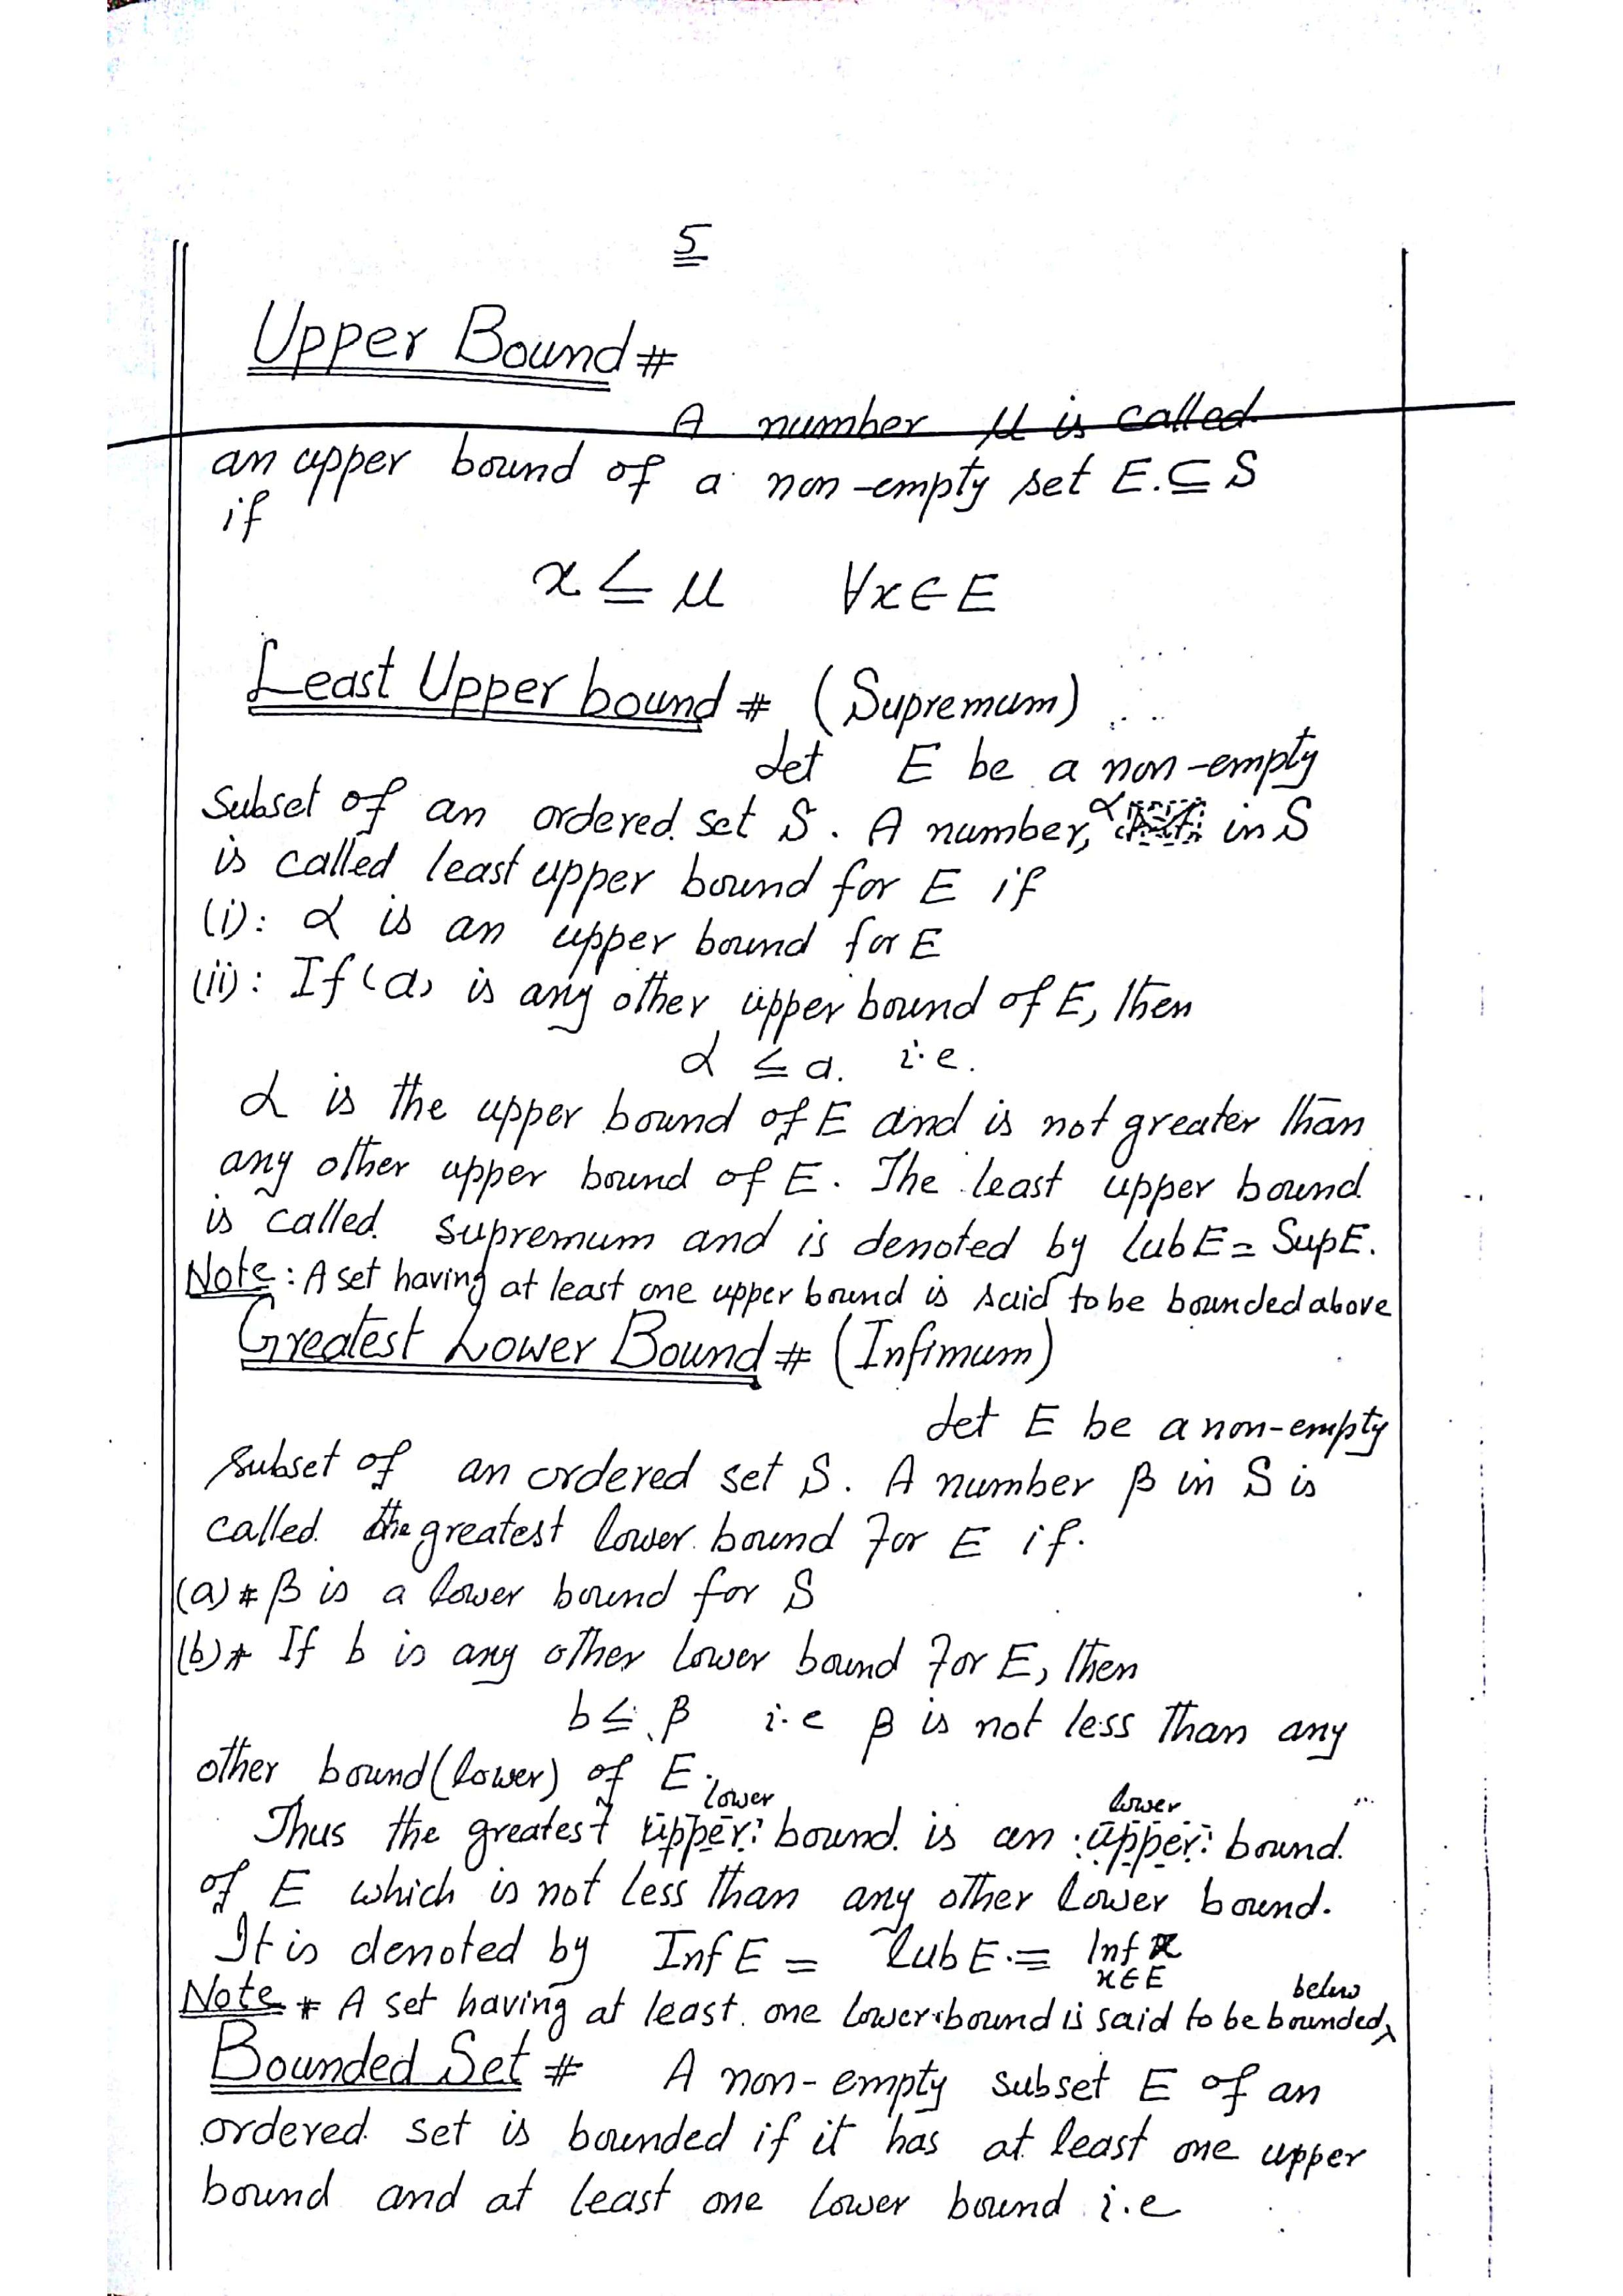 5
Upper Bound #
A number μ is called
an upper bound of a non-empty set E ⊆ S
if
x ≤ μ ∀x∈E
Least Upper bound # (Supremum)
Let E be a non-empty
Subset of an ordered set S. A number, α in S
is called least upper bound for E if
(i): α is an upper bound for E
(ii): If (a) is any other upper bound of E, then
α ≤ a. i.e.
α is the upper bound of E and is not greater than
any other upper bound of E. The least upper bound
is called supremum and is denoted by lub E = Sup E.
Note: A set having at least one upper bound is said to be bounded above
Greatest Lower Bound # (Infimum)
Let E be a non-empty
subset of an ordered set S. A number β in S is
called the greatest lower bound for E if.
(a)# β is a lower bound for S
(b)* If b is any other lower bound for E, then
b ≤ β i.e β is not less than any
other bound (lower) of E.
lower lower
Thus the greatest upper bound is an upper bound
of E which is not less than any other lower bound.
It is denoted by Inf E = lub E = Inf x
x∈E
below
Note # A set having at least one lower bound is said to be bounded
Bounded Set # A non-empty subset E of an
ordered set is bounded if it has at least one upper
bound and at least one lower bound i.e